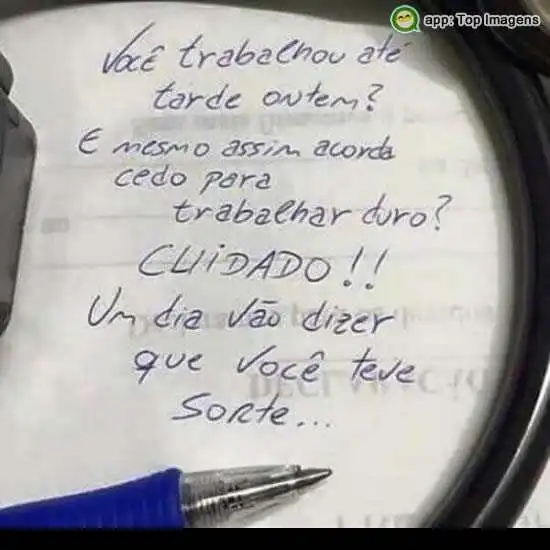 app: Top Imagens
Você trabalhou até
tarde ontem?
E mesmo assim acorda
cedo para
trabalhar duro?
CUIDADO!!
Um dia vão dizer
que você teve
sorte...